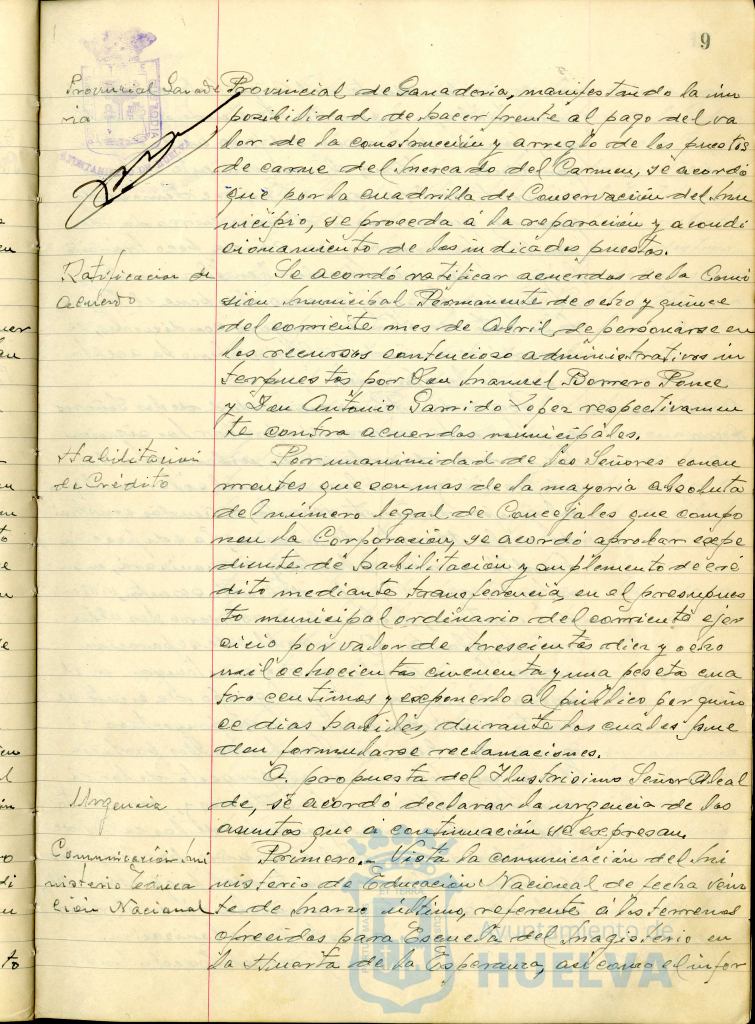 9
Provincial Ganade
ria
Provincial de Ganaderia, manifestando la im
posibilidad de hacer frente al pago del va
lor de la construcción y arreglo de los puestos
de carne del Mercado del Carmen, se acordó
que por la cuadrilla de Conservación del Mu
nicipio, se proceda á la reparación y acondi
cionamiento de los indicados puestos.
Ratificacion de
Acuerdo
Se acordó ratificar acuerdos de la Comi
sión Municipal Permanente de ocho y quince
del corriente mes de Abril, de personarse en
los recursos contencioso administrativos in
terpuestos por Don Manuel Borrero Ponce
y Don António Garrido Lopez respectivamen
te contra acuerdos municipales.
Habilitación
de Crédito
Por unanimidad de los Señores concu
rrentes que son mas de la mayoria absoluta
del número legal de Concejales que compo
nen la Corporación, se acordó aprobar expe
diente de habilitación y suplemento de cré
dito mediante transferencia, en el presupues
to municipal ordinario del corriente ejer
cicio por valor de trescientas diez y ocho
mil ochocientas cincuenta y una peseta cua
tro centimos y exponerlo al público por quin
ce dias habiles, durante los cuales pue
den formularse reclamaciones.
Urgencia
A propuesta del Ilustrisimo Señor Alcal
de, se acordó declarar la urgencia de los
asuntos que á continuación se expresan.
Comunicación Mi
nisterio Educa
ción Nacional
Primero.- Vista la comunicación del Mi
nisterio de Educación Nacional de fecha vein
te de Marzo último, referente á los terrenos
ofrecidos para Escuela del Magisterio en
la Huerta de la Esperanza, asi como el infor
Ayuntamiento de
HUELVA